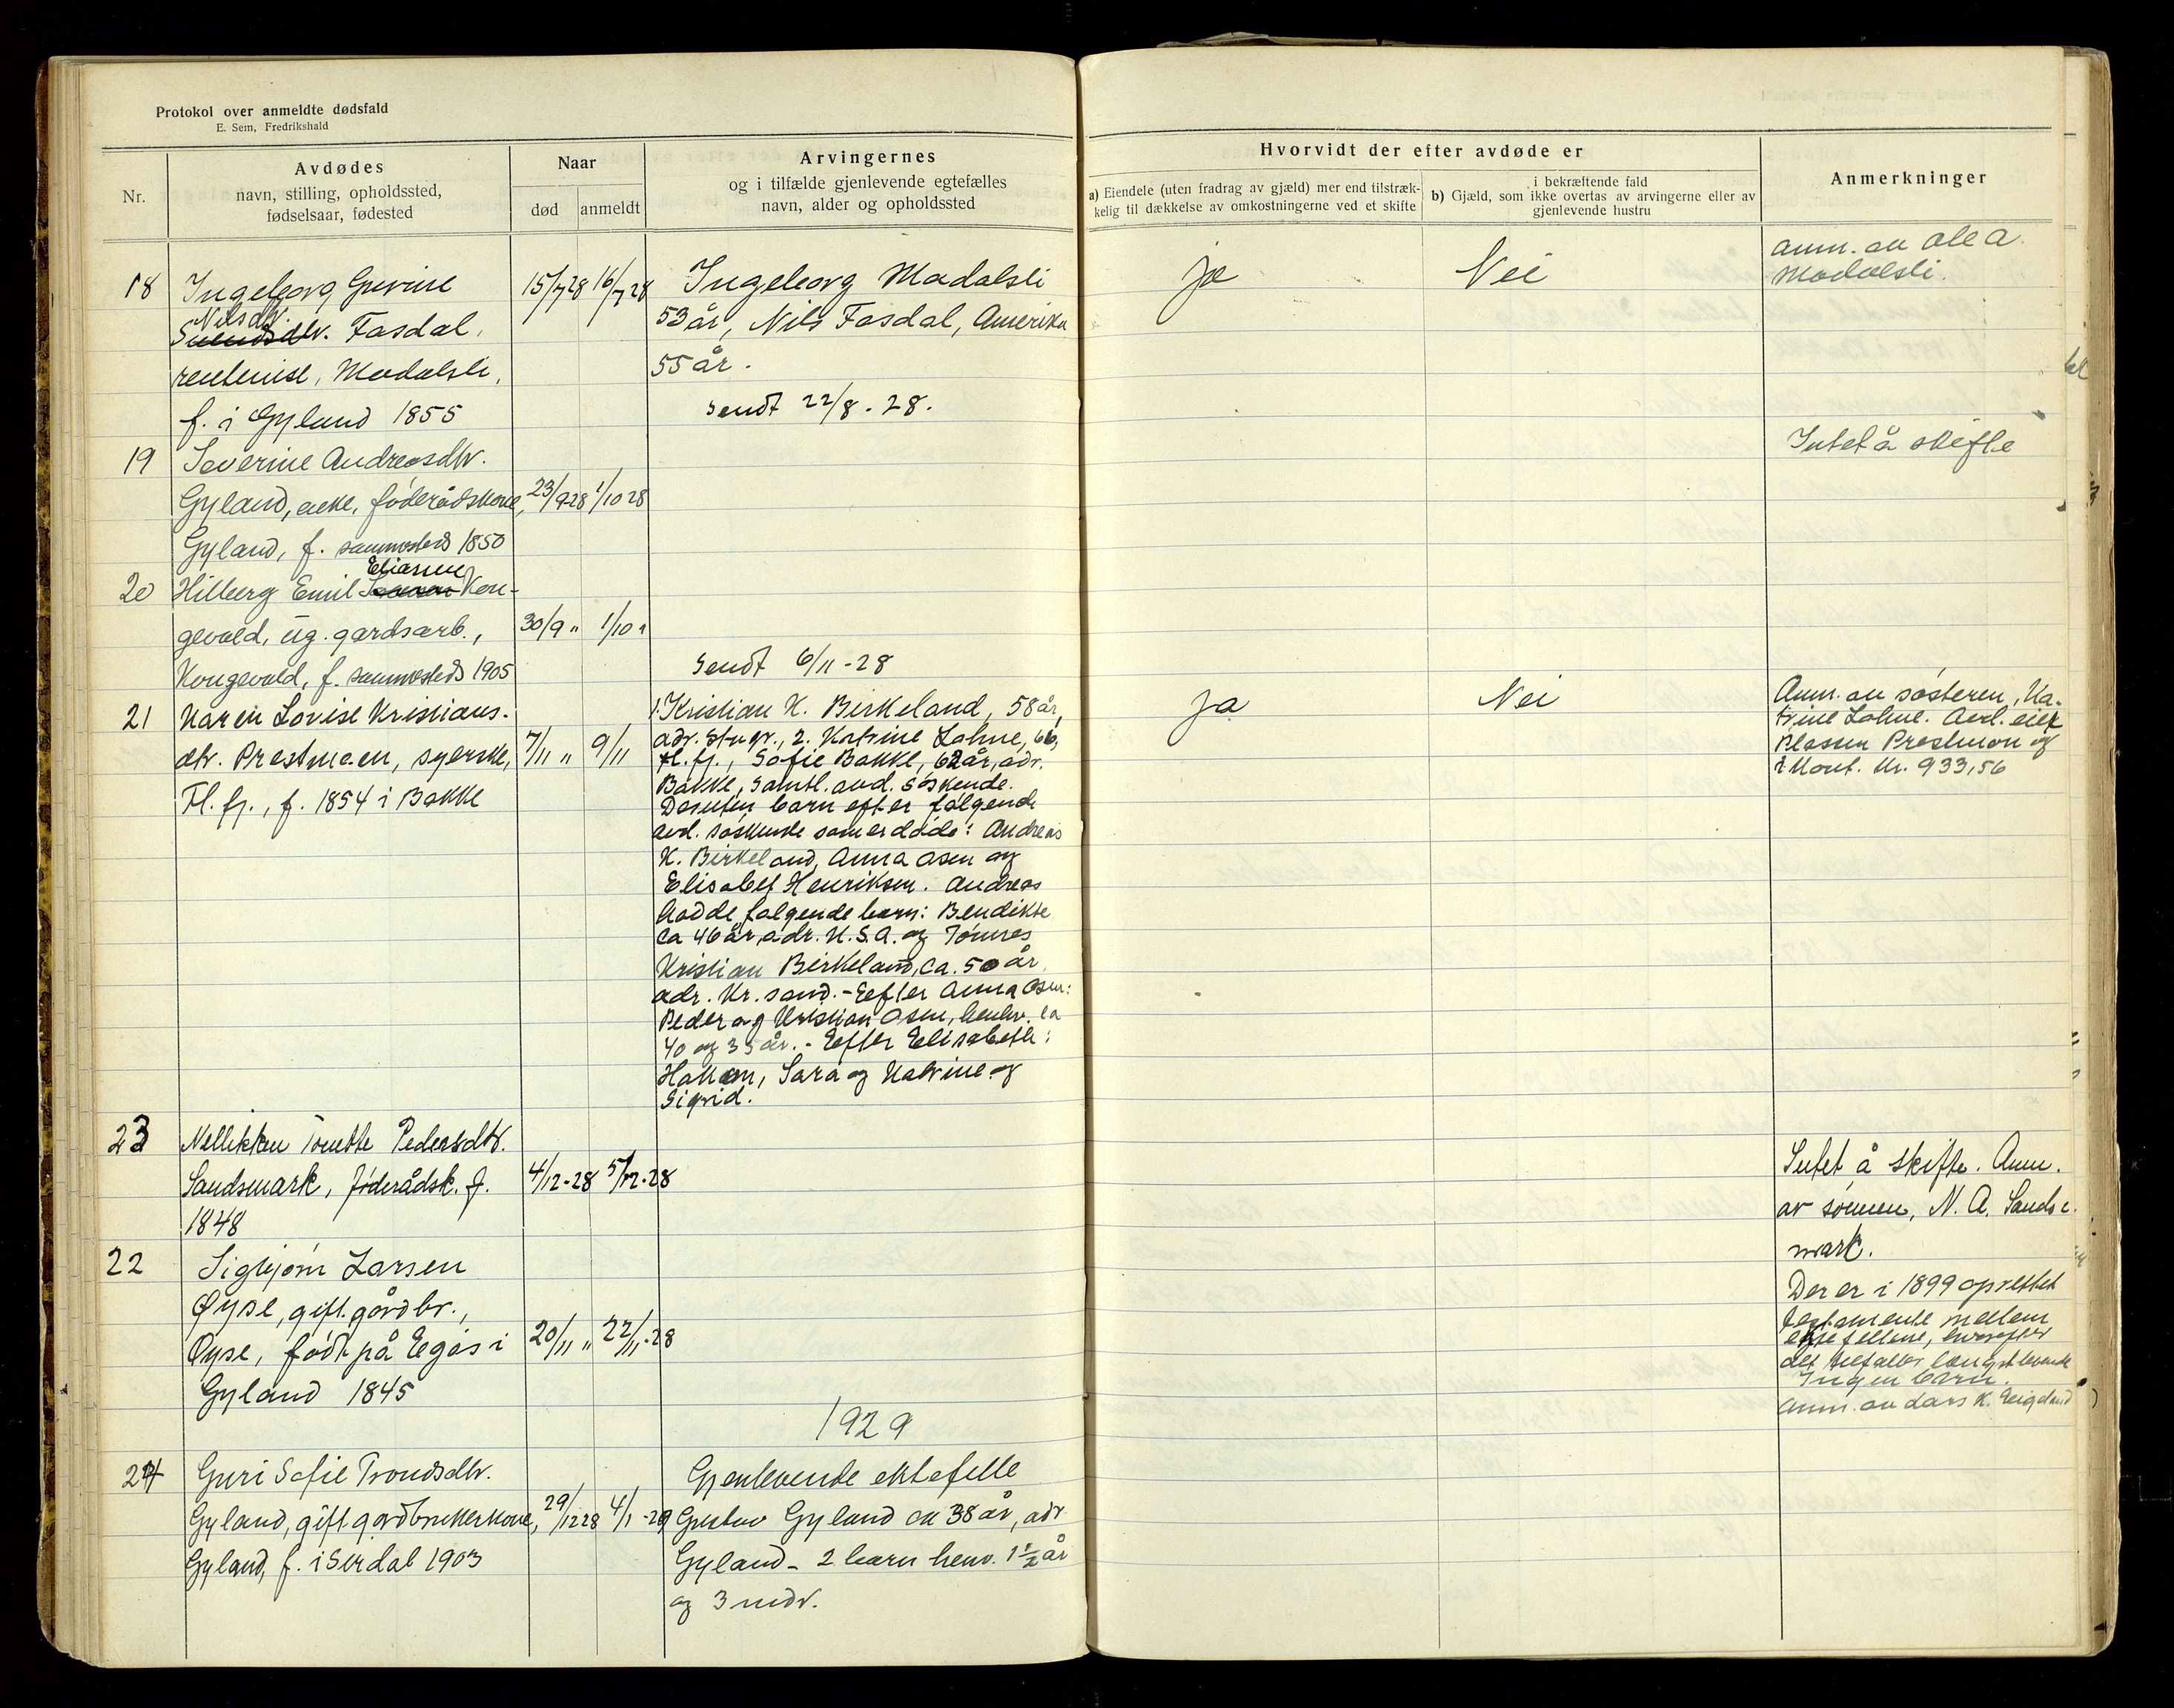 Protokol over anmeldte dødsfald
E. Sem, Fredrikshald
Nr.
Avdødes
navn, stilling, opholdssted,
fødselsaar, fødested
Naar
død
anmeldt
Arvingernes
og i tilfælde gjenlevende egtefælles
navn, alder og opholdssted
Hvorvidt der efter avdøde er
a) Eiendele (uten fradrag av gjæld) mer end tilstræk-
kelig til dækkelse av omkostningerne ved et skifte
i bekræftende fald
b) Gjæld, som ikke overtas av arvingerne eller av
gjenlevende hustru
Anmerkninger
18
Ingeborg Gurine
Nilsdtr.
Svendsdtr. Fasdal,
rentenise, Modalsli,
f. i Gyland 1855
15/7 28
16/7 28
Ingeborg Modalsli
53 år, Nils Fasdal, Amerika
55 år.
Sendt 22/8 - 28.
ja
Nei
Anm. av Ole A.
Modalsli.
19
Severine Andreasdtr.
Gyland, enke, føderådskone,
Gyland, f. sammesteds 1850
23/9-28
1/10 28
Intet å skifte
20
Elianne
Hilberg Emil Kon-
gevold, ug. gardsarb.,
Kongevold, f. sammesteds 1905
30/9 "
1/10 "
Sendt 6/11 - 28
21
Karen Lovise Kristians-
dtr. Prestmoen, syerske,
Fl. fj., f. 1854 i Bakke
7/11 "
9/11
1. Kristian K. Birkeland, 58 år,
adr. Stugr., 2. Katrine Lohne, 66,
Fl. fj., Sofie Bakke, 62 år, adr.
Bakke, samtl. avd. søskende.
Desuten barn efter følgende
avd. søskende som er døde: Andreas
K. Birkeland, Anna Osen og
Elisabet Henriksen. Andreas
hadde følgende barn: Bendikte
ca 46 år, adr. U.S.A. og Tønnes
Kristian Birkeland, ca. 50 år
adr. Kr.sand. - Eefter Anna Osen:
Peder og Kristian Osen, henhv. ca
40 og 35 år. - Eefter Elisabeth:
Hakon, Sara og Katrine og
Sigrid.
ja
Nei
Anm. av søsteren, Ka-
trine Lohne. Avd. eier
Plassen Prestmon og
i Kont. Kr. 933,56
23
Nellikken Tonette Pedersdtr.
Sandsmark, føderådsk. f.
1848
4/12-28
5/12-28
Intet å skifte. Anm.
av sønnen, N. A. Sands-
mark.
22
Sigbjørn Larsen
Øyse, gift. gårdbr.,
Øyse, født på Egås i
Gyland 1845
20/11 "
22/11-28
Der er i 1899 oprettet
testamente mellem
egtefellene, hvorefter
alt tilfaller lengstlevende
Ingen barn.
Anm. av Lars K. Eigeland
1929
24
Guri Sofie Trondsdtr.
Gyland, gift. gårdbrukerkone,
Gyland, f. i Sirdal 1903
29/12 28
4/1 -29
Gjenlevende ektefelle
Gustav Gyland ca 38 år, adr
Gyland - 2 barn henv. 1 1/2 år
og 3 mdr.